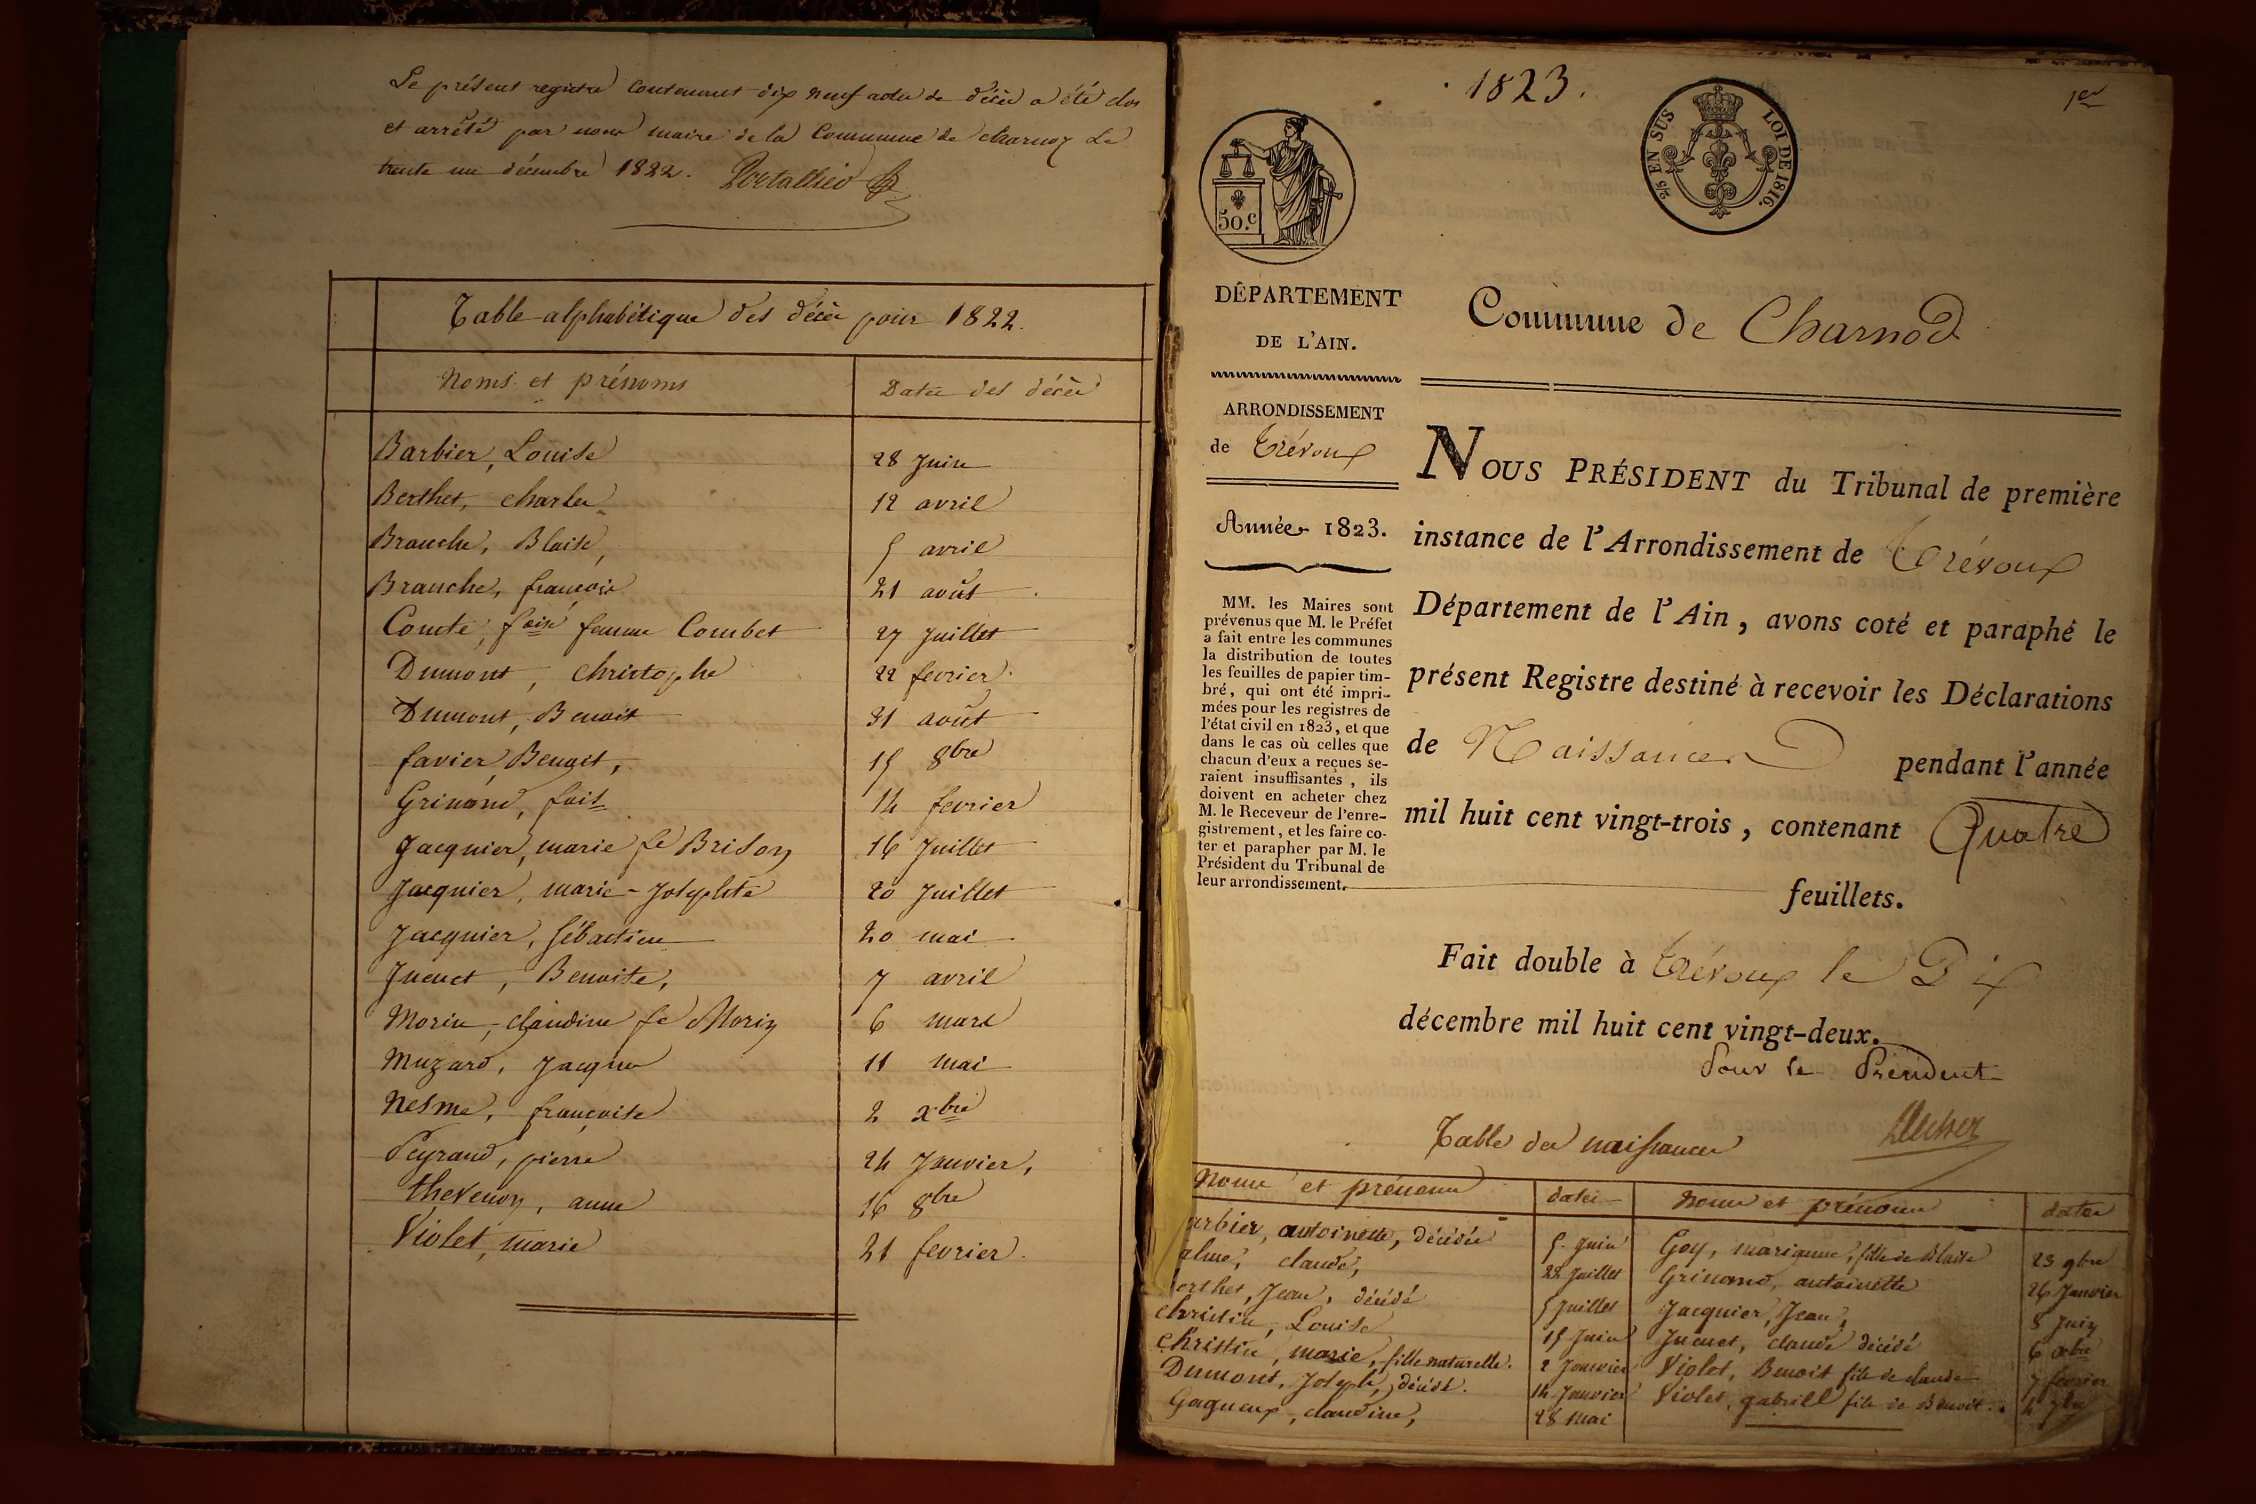 Le présent registre contenant dix neuf actes de décès a été clos
et arrêté par nous maire de la Commune de charnoz Le
trente un décembre 1822. Portallier
Table alphabétique des décès pour 1822.
Noms et prénoms
Dates des décès
Barbier, Louise 28 Juin
Berthet, charles 12 avril
Branche, Blaise, 5 avril
Branche, françois 21 août
Comte, foise femme Combet 27 Juillet
Dumont, christophe 22 fevrier
Dumont, Benoit 31 août
favier, Benoit, 15 8bre
Grinand, foise 14 fevrier
Jacquier, marie fe Brison 16 Juillet
Jacquier, marie-Josephte 20 Juillet
Jacquier, Sébastien 20 mai
Juenet, Benoite, 7 avril
Morin, claudine fe Morin 6 mars
Muzard, Jacques 11 mai
Nesme, françoise 2 xbre
Peyraud, pierre 24 Janvier,
thevenon, anne 16 8bre
Violet, marie 21 fevrier.
1823.
1er
2/5 EN SUS LOI DE 1816.
50.c
DÉPARTEMENT
DE L'AIN.
Commune de Charnod
ARRONDISSEMENT
de Trévoux
Année 1823.
MM. les Maires sont
prévenus que M. le Préfet
a fait entre les communes
la distribution de toutes
les feuilles de papier tim-
bré, qui ont été impri-
mées pour les registres de
l'état civil en 1823, et que
dans le cas où celles que
chacun d'eux a reçues se-
raient insuffisantes, ils
doivent en acheter chez
M. le Receveur de l'enre-
gistrement, et les faire co-
ter et parapher par M. le
Président du Tribunal de
leur arrondissement.
NOUS PRÉSIDENT du Tribunal de première
instance de l'Arrondissement de Trévoux
Département de l'Ain, avons coté et paraphé le
présent Registre destiné à recevoir les Déclarations
de Naissances pendant l'année
mil huit cent vingt-trois, contenant Quatre
feuillets.
Fait double à Trévoux le Dix
décembre mil huit cent vingt-deux.
Pour le Président
Table des naissances
Noms et prénoms dates Noms et prénoms dates
arbier, antoinette, décédée 5 Juin Goy, marianne, fille de Blaise 23 9bre
alme, claude, 28 Juillet Grinand, antoinette 26 Janvier
erthet, Jean, décédé 5 Juillet Jacquier, Jean, 8 Juin
christin, Louise 15 Juin Juenet, claude décédé 6 xbre
christin, marie, fille naturelle. 2 Janvier Violet, Benoit fils de claude 7 fevrier
Dumont, Joseph, décédé. 14 Janvier Violet, gabriel fils de Benoit 4 7bre
Gagneux, claudine, 28 mai